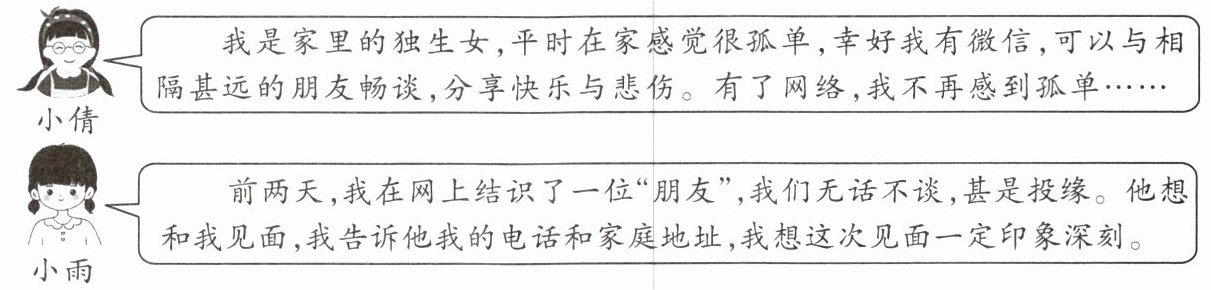 我是家里的独生女,平时在家感觉很孤单,幸好我有微信,可以与相
隔甚远的朋友畅谈,分享快乐与悲伤。有了网络,我不再感到孤单……
小倩
前两天,我在网上结识了一位“朋友”,我们无话不谈,甚是投缘。他想
和我见面,我告诉他我的电话和家庭地址,我想这次见面一定印象深刻。
小雨